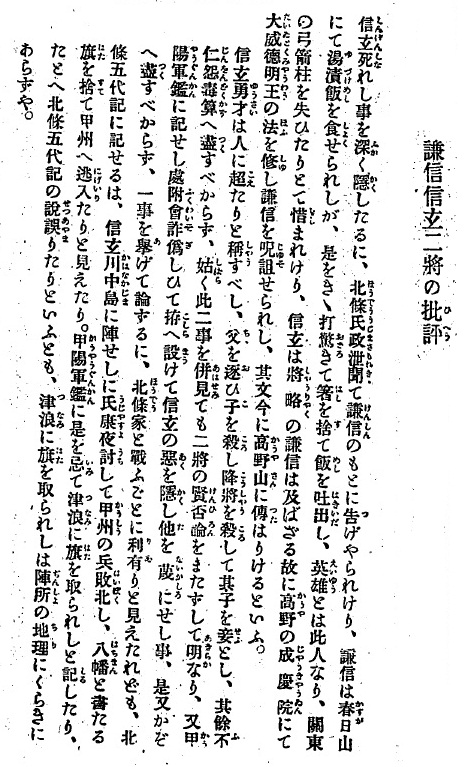 謙信信玄二將の批評
信玄死れし事を深く隱したるに、北條氏政泄聞て謙信のもとに告げやられけり、謙信は春日山
にて湯漬飯を食せられしが、是をきゝ打驚きて箸を捨て飯を吐出し、英雄とは此人なり、關東
の弓箭柱を失ひたりとて惜まれけり、信玄は將略の謙信は及ばざる故に高野の成慶院にて
大威德明王の法を修し謙信を呪詛せられし、其文今に高野山に傳はりけるといふ。
信玄勇才は人に超たりと稱すべし、父を逐ひ子を殺し降將を殺して其子を妾とし、其餘不
仁怨毒算へ盡すべからず、姑く此二事を併見ても二將の賢否論をまたずして明なり、又甲
陽軍鑑に記せし處附會詐僞しひて拵へ設けて信玄の惡を隱し他を蔑にせし事、是又かぞ
へ盡すべからず、一事を擧げて論ずるに、北條家と戰ふごとに利有りと見えたれども、北
條五代記に記せるは、信玄川中島に陣せしに氏康夜討して甲州の兵敗北し、八幡と書たる
旗を捨て甲州へ逃入たりと見えたり。甲陽軍鑑に是を忌て津浪に旗を取られしと記したり、
たとへ北條五代記の說誤りたりといふとも、津浪に旗を取られしは陣所の地理にくらきに
あらずや。